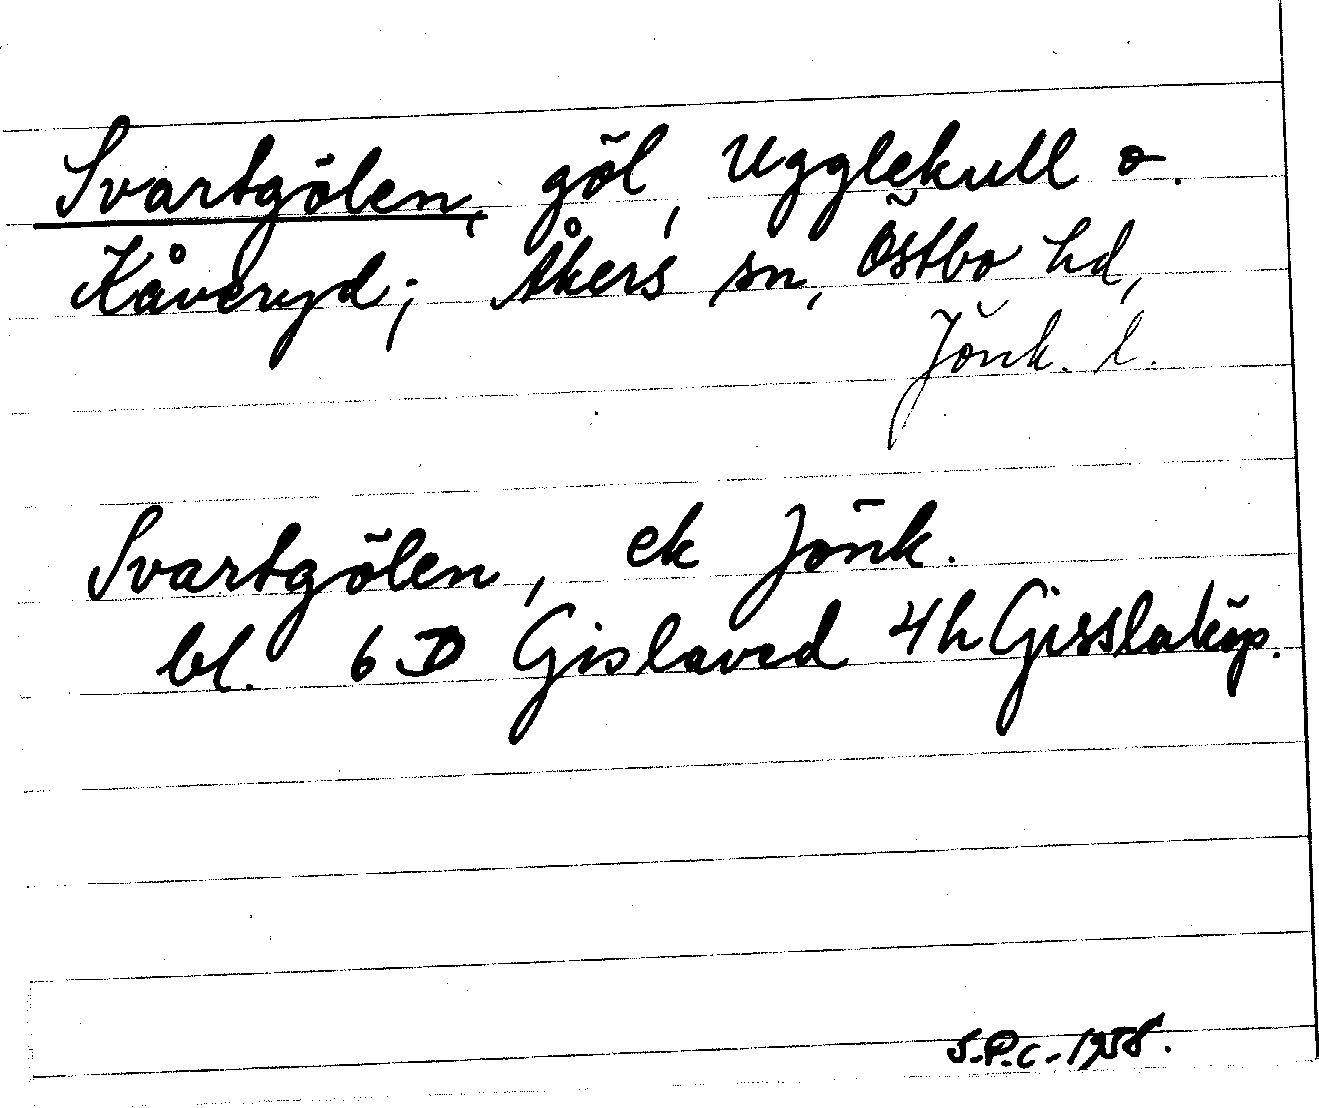 Svartgölen, göl, Ugglekull o.
Kåveryd; Åkers sn, Östbo hd,
Jönk. l.
Svartgölen, ek Jönk.
bl. 6 D Gislaved 4h Gisslaköp.
S.P.C. 1958.